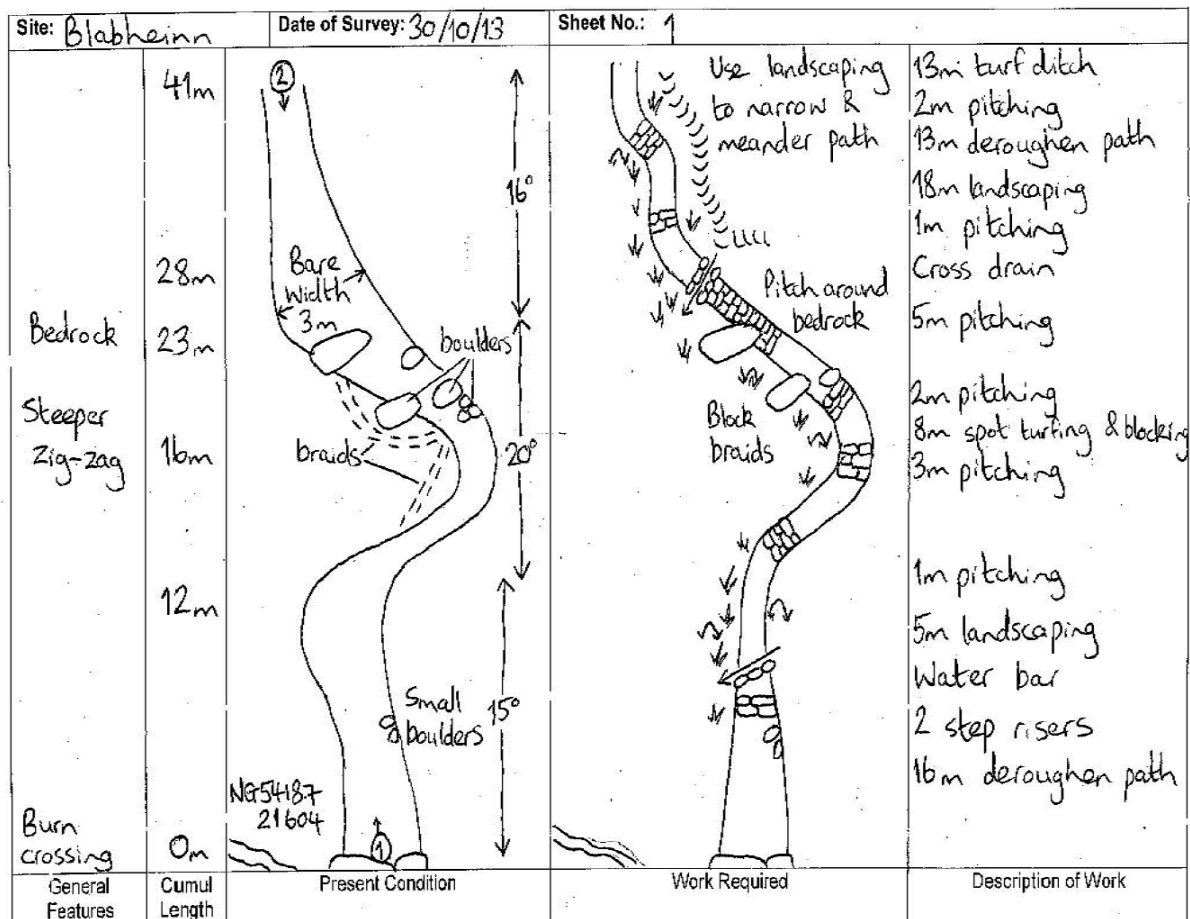 Site: Blabheinn
Date of Survey: 30/10/13
Sheet No.: 1
41m
28m
Bedrock
23m
Steeper
Zig-zag
16m
12m
Burn
crossing
0m
2
Bare
Width
3m
boulders
braids
Small
boulders
NG54187
21604
1
16°
20°
15°
Use landscaping
to narrow &
meander path
Pitch around
bedrock
Block
braids
13m turf ditch
2m pitching
13m deroughen path
18m landscaping
1m pitching
Cross drain
5m pitching
2m pitching
8m spot turfing & blocking
3m pitching
1m pitching
5m landscaping
Water bar
2 step risers
16m deroughen path
General
Features
Cumul
Length
Present Condition
Work Required
Description of Work